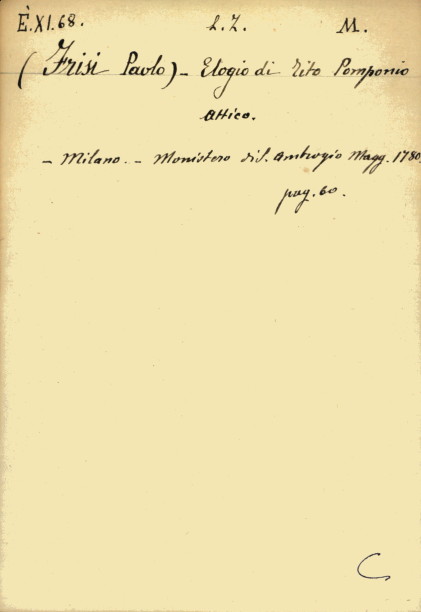 E.XI.68. L.Z. M.
(Frisi Paolo) - Elogio di Tito Pomponio
Attico.
- Milano. - Monistero di S. Ambrogio Magg. 1780.
pag. 60.
C